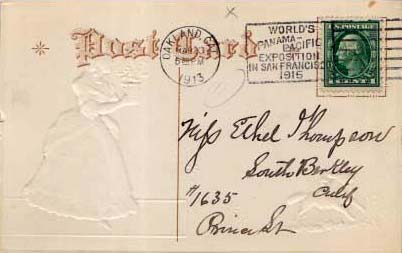 Post Card
OAKLAND, CAL.
5 PM
1913
WORLD'S
PANAMA-PACIFIC
EXPOSITION
IN SAN FRANCISCO
1915
Miss Ethel Thompson
South Berkley
Calif
#1635
Prince St